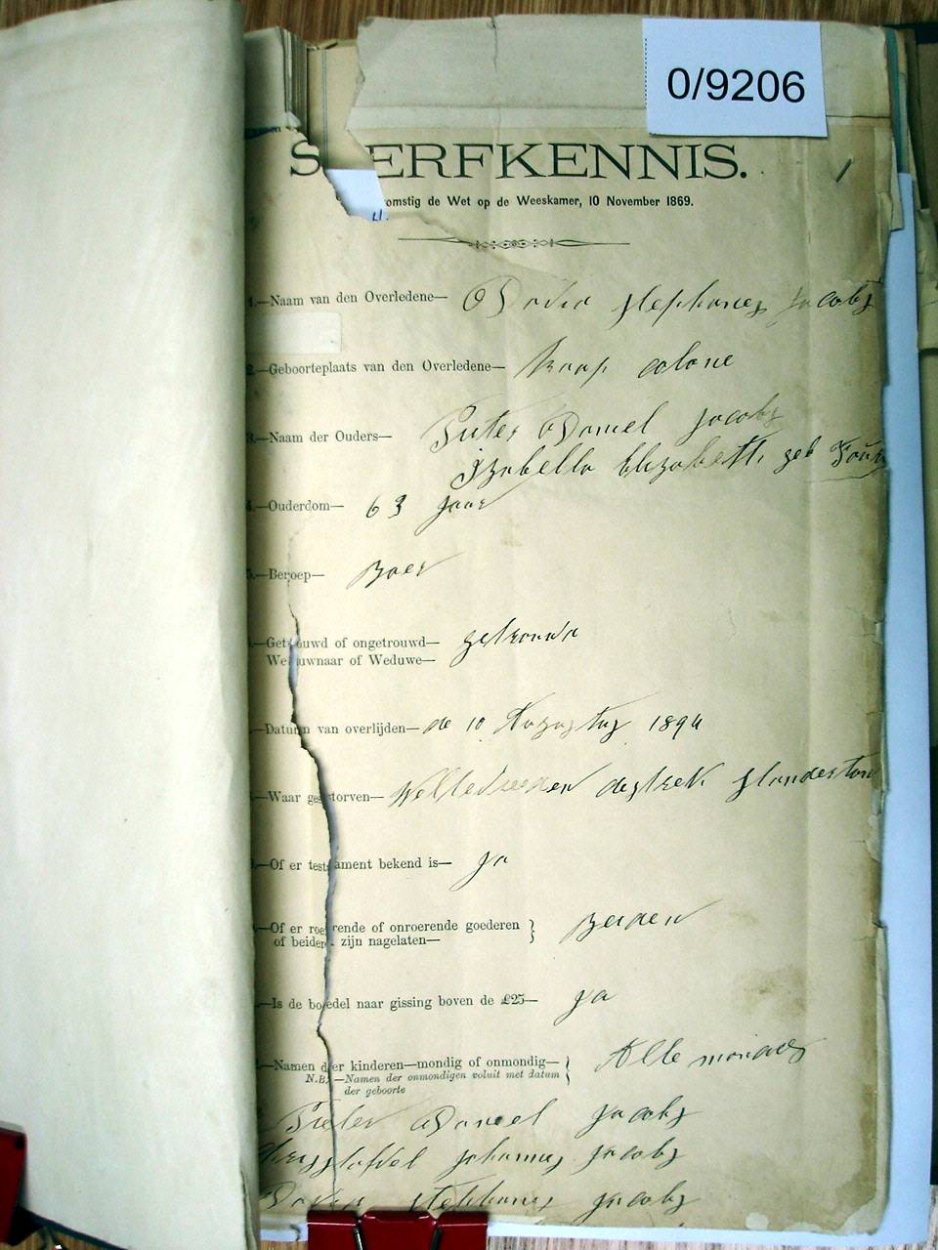 0/9206
S ERFKENNIS.
omstig de Wet op de Weeskamer, 10 November 1869.
1.—Naam van den Overledene— David Stephanes Jacobs
2.—Geboorteplaats van den Overledene— Kaap colone
3.—Naam der Ouders— Piter Daniel Jacobs
Izabella Elizabeth geb
4.—Ouderdom— 63 jaar
5.—Beroep— Boer
Getrouwd of ongetrouwd— getrouwd
Weduwnaar of Weduwe—
Datum van overlijden— de 10 Augustus 1894
Waar gestorven— destrek Standerton
Of er testament bekend is— Ja
Of er roerende of onroerende goederen } Beiden
of beiden zijn nagelaten—
Is de boedel naar gissing boven de £25— Ja
Namen der kinderen—mondig of onmondig— } Alle
N.B.—Namen der onmondigen voluit met datum
der geboorte
Pieter Daniel Jacobs
Johannes Jacobs
Stephanes Jacobs